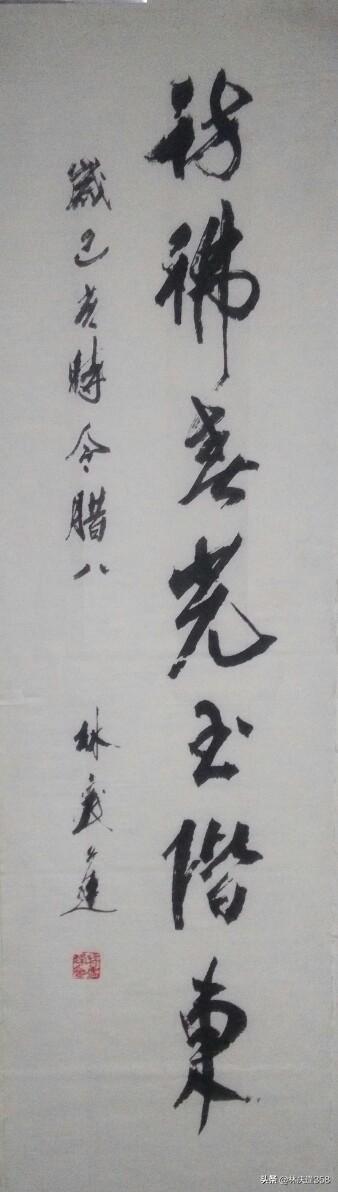 彷彿春光玉階東
歲己亥時令腊八
林慶
头条 @林庆358